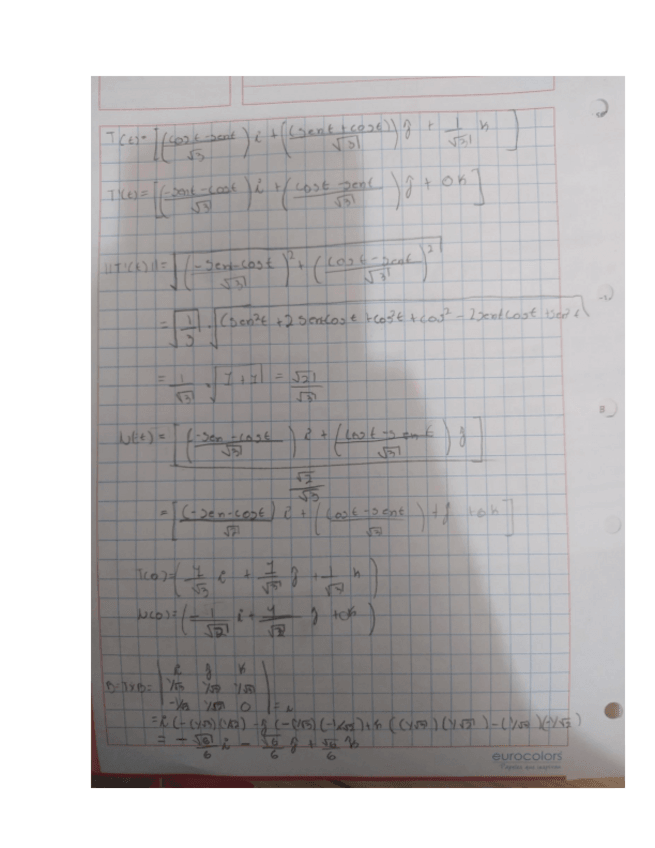 T(t)= [((cost-sent)/√3) i + ((sent+cost)/√3) j + 1/√3 k]
T'(t)= [((-sent-cost)/√3) i + ((cost-sent)/√3) j + 0k]
||T'(t)||= √(((-sen-cost)/√3)² + ((cost-sent)/√3)²)
= √(1/3) · √(sen²t + 2sentcost + cos²t + cos² - 2sentcost
= 1/√3 · √(1+1) = √2/√3
N(t) = [((-sen-cost)/√3) i + ((cost-sent)/√3) j] / (√2/√3)
= [((-sen-cost)/√2) i + ((cost-sent)/√2) + j + 0k]
T(0)=(1/√3 i + 1/√3 j + 1/√3 k)
N(0)=(-1/√2 i + 1/√2 j + 0k)
i j k
1/√3 1/√3 1/√3
-1/√2 1/√2 0
= -√6/6 i - √6/6 j + √6/6 k
eurocolors